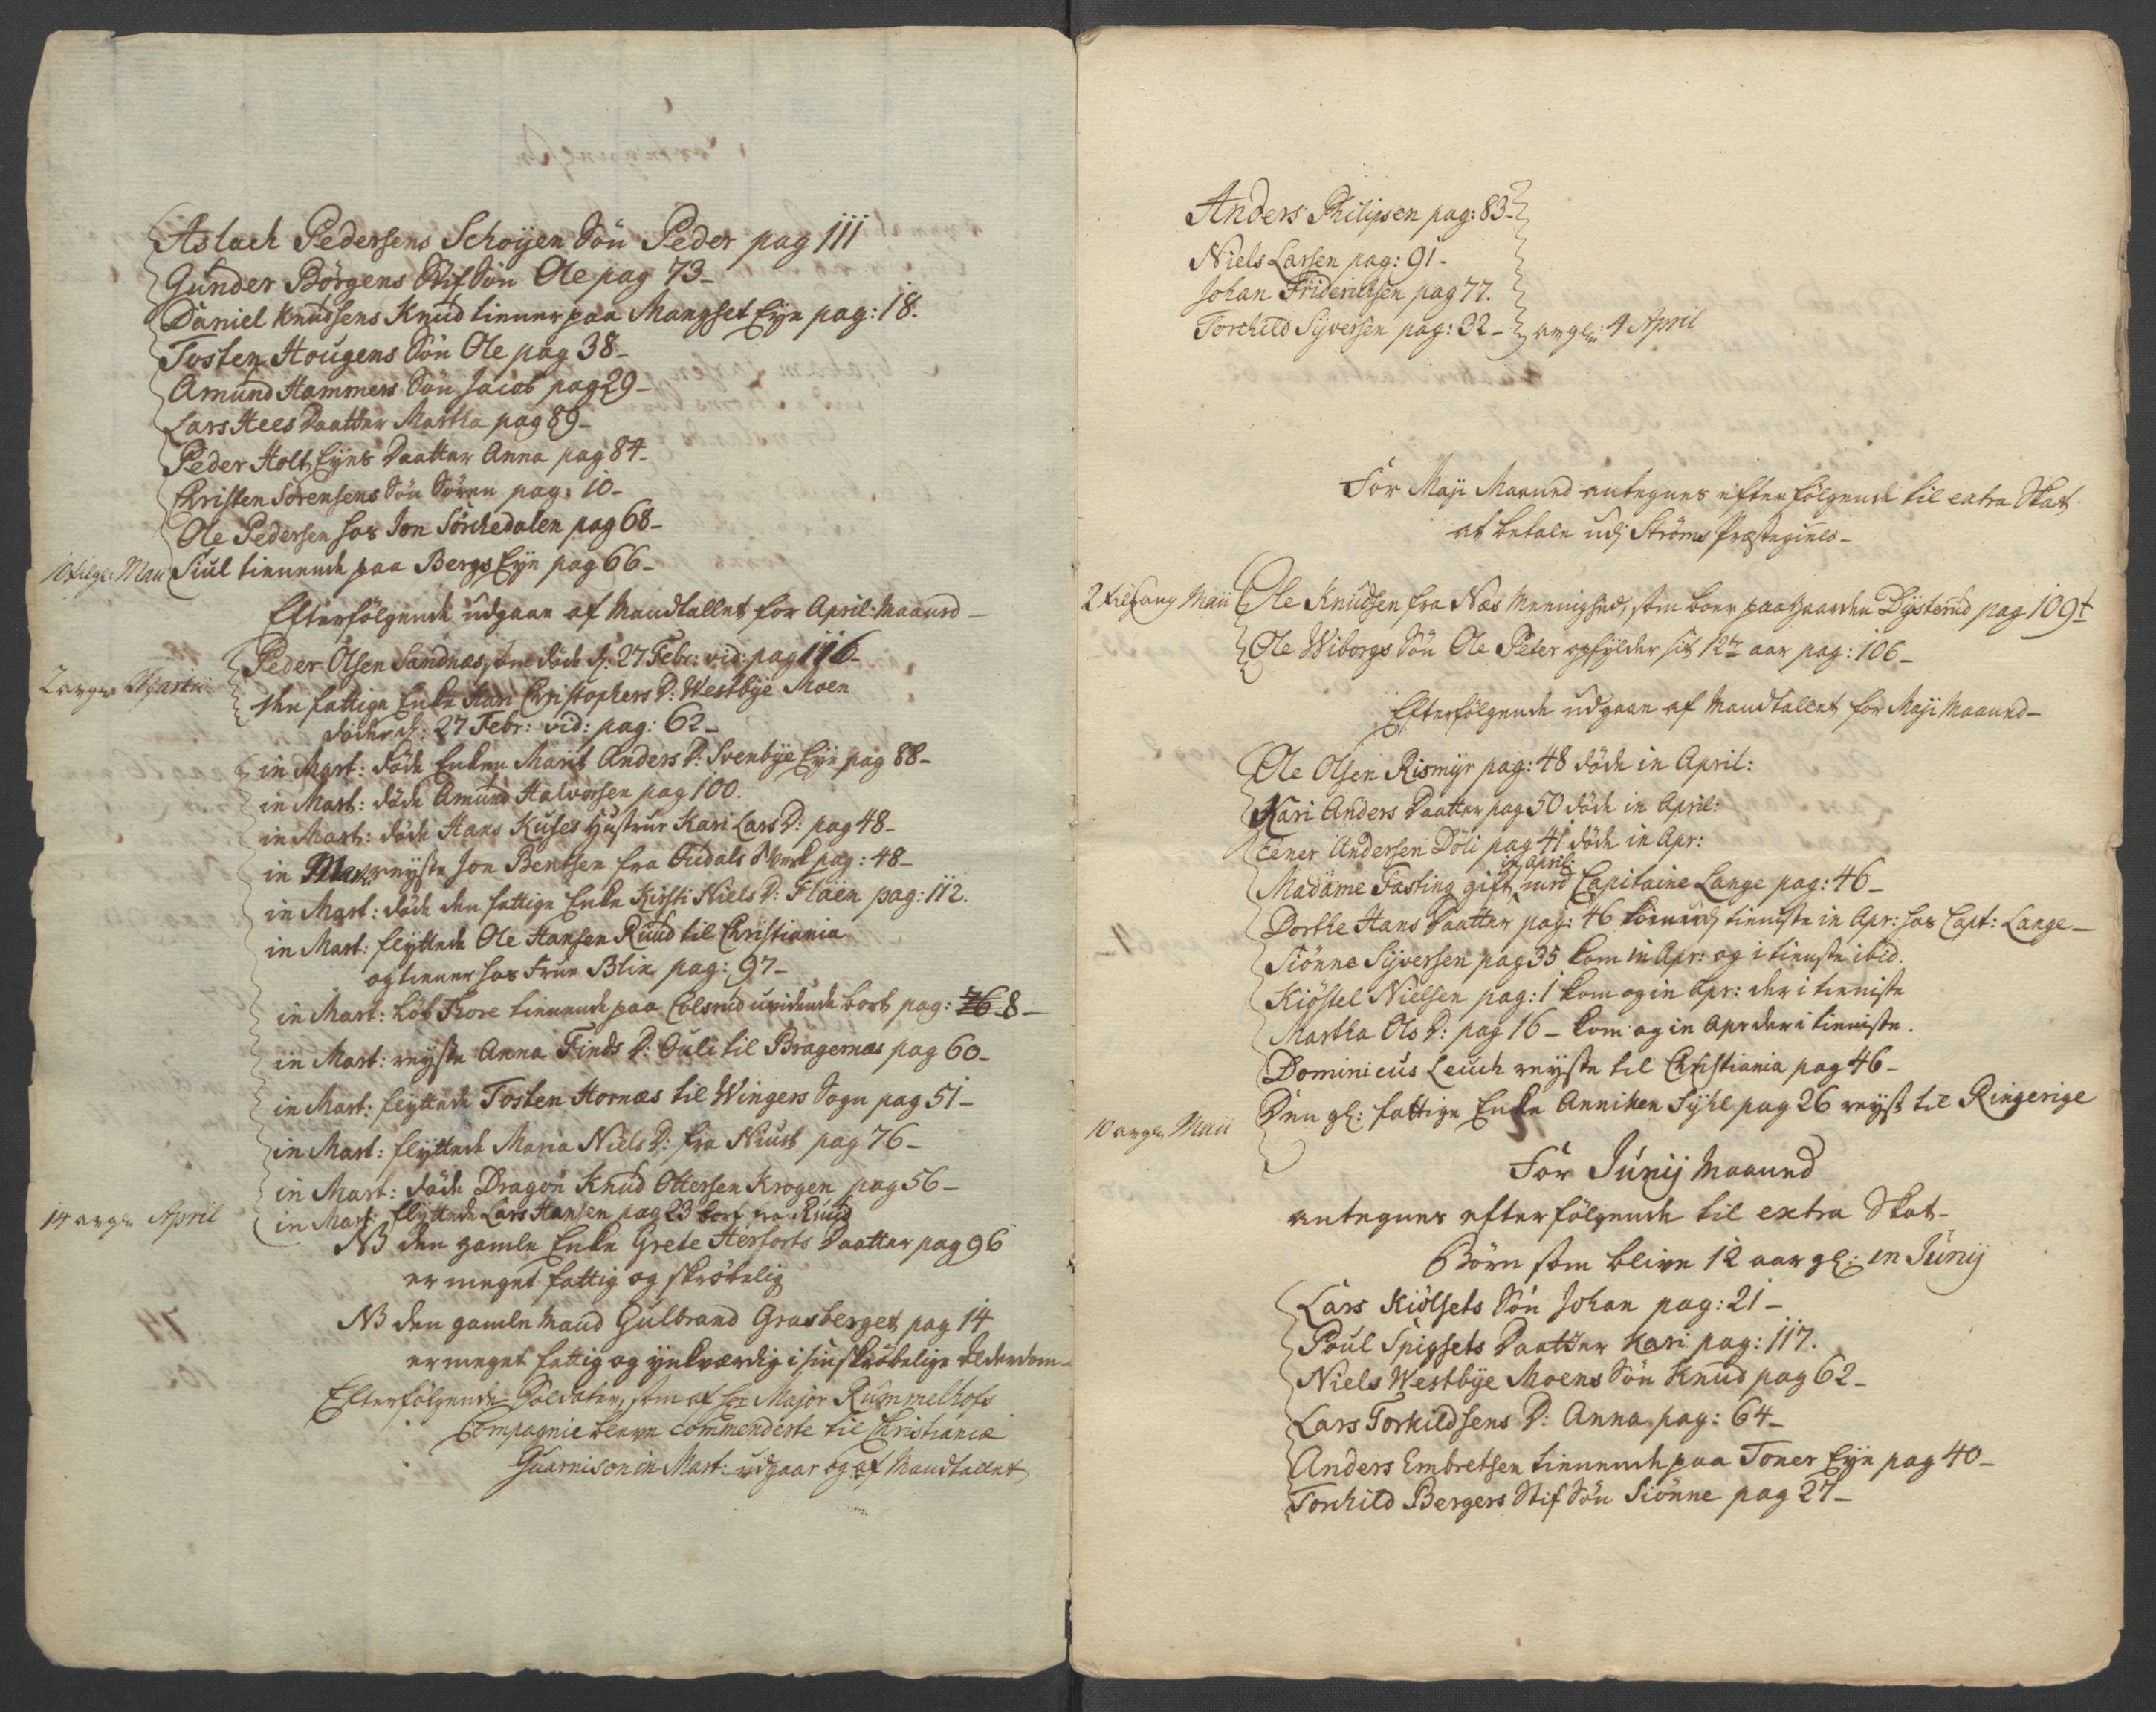 Aslach Pedersens Schoÿen Søn Peder pag 111
Gunder Börgens Stif Søn Ole pag 73_
Daniel Knudsens Knud tienner paa Mangset Eÿe pag: 18.
Tosten Hougens Søn Ole pag 38_
Amund Hammers Søn Jacob pag 29_
Lars Hees Daatter Martha pag 89_
Peder Holt Eÿes Daatter Anna pag 84_
Christen Sørensens Søn Søren pag: 10_
Ole Pedersen hos Jon Sørchedalen pag 68_
10 tilg: Maii Siul tienende paa Bergs Eÿe pag 66_
Efterfölgende udgaar af Mandtallet for April: Maaned_
Peder Olsen Sandnæs, som døde d. 27 Febr: vid: pag 116_
2 avge Martii
den fattige Enke Kari Christophers D: Westbÿe Moen
døde d: 27 Febr: vid: pag: 62_
in Mart: døde Enken Marit Anders D: Svenbÿe Eÿe pag 88_
in Mart: døde Amund Halvorsen pag 100.
in Mart: døde Hans Kuses Hustrue Kari Lars D: pag 48_
in Mart: reÿste Jon Bentsen fra Oudals Werk pag: 48_
in Mart: døde den fattige Enke Kirsti Niels D: Flaen pag: 112.
in Mart: flÿttede Ole Hansen Ruud til Christiania
og tienner hos Frue Blix pag: 97_
in Mart: løb Thore tienende paa Colsrud uvidende bort pag: 76_8_
in Mart: reÿste Anna Finds D: Ouli til Bragernæs pag 60_
in Mart: flÿttede Tosten Hornæs til Wingers Sogn pag 51_
in Mart: flÿttede Maria Niels D: fra Niust pag 76_
in Mart: døde Dragon Knud Ottersen Krogen pag 56_
14 avge April in Mart: flÿttede Lars Hansen pag 23 bort fra Ruud
NB den gamle Enke Grete Herforts Daatter pag 96
er meget fattig og skrøbelig
NB den gamle Mand Gulbrand Grasberget pag 14
er meget fattig og ynkværdig i sin skrøbelige Alderdom_
Efterfölgende Soldater, som af Hr Major Rummelhofs
Compagnie bleve commenderte til Christiania
Guarnison in Mart: udgaar og af Mandtallet
Anders Philipsen pag: 83_
Niels Larsen pag: 91_
Johan Friderichsen pag 77.
Torchild Sÿversen pag: 32_ avge: 4 April
For Maji Maaned antegnes efterfölgende til extra Skat
at betale udj Strøms Præstegield_
2 tilgang Maii Ole Knudsen fra Næs Menighed, som boer paa Gaarden Dÿsterud pag 109t
Ole Wiborgs Søn Ole Peter opfylder sit 12te aar pag: 106_
Efterfölgende udgaar af Mandtallet for Maji Maaned_
Ole Olsen Rismÿr pag: 48 døde in April:
Kari Anders Daatter pag 50 døde in April:
Eener Andersen Döli pag 41 døde in Apr:
in April:
Madame Fasting gift med Capitaine Lange pag: 46_
Dorthe Hans Daatter pag: 46 kom udj tieniste in Apr: hos Capt: Lange_
Siönne Sÿversen pag 35 kom in Apr: og i tieniste ibid.
Kiöstel Nielsen pag: 1 kom og in Apr: der i tieniste
Martha Ols D: pag 16_ kom og in Apr der i tieniste.
Dominicus Leuch reÿste til Christiania pag 46_
10 avge Maii Den gl: fattige Enke Anniken Sÿhl pag 26 reÿst til Ringerige
For Junij Maaned
antegnes efterfölgende til extra Skat_
Börn som blive 12 aar gl: in Junij
Lars Kiölsets Søn Johan pag: 21_
Poul Spigsets Daatter Kari pag: 117.
Niels Westbÿe Moens Søn Knud pag 62_
Lars Torkildsens D: Anna pag: 64_
Anders Embretsen tienende paa Toner Eÿe pag 40_
Torchild Bergers Stif Søn Siönne pag 27_